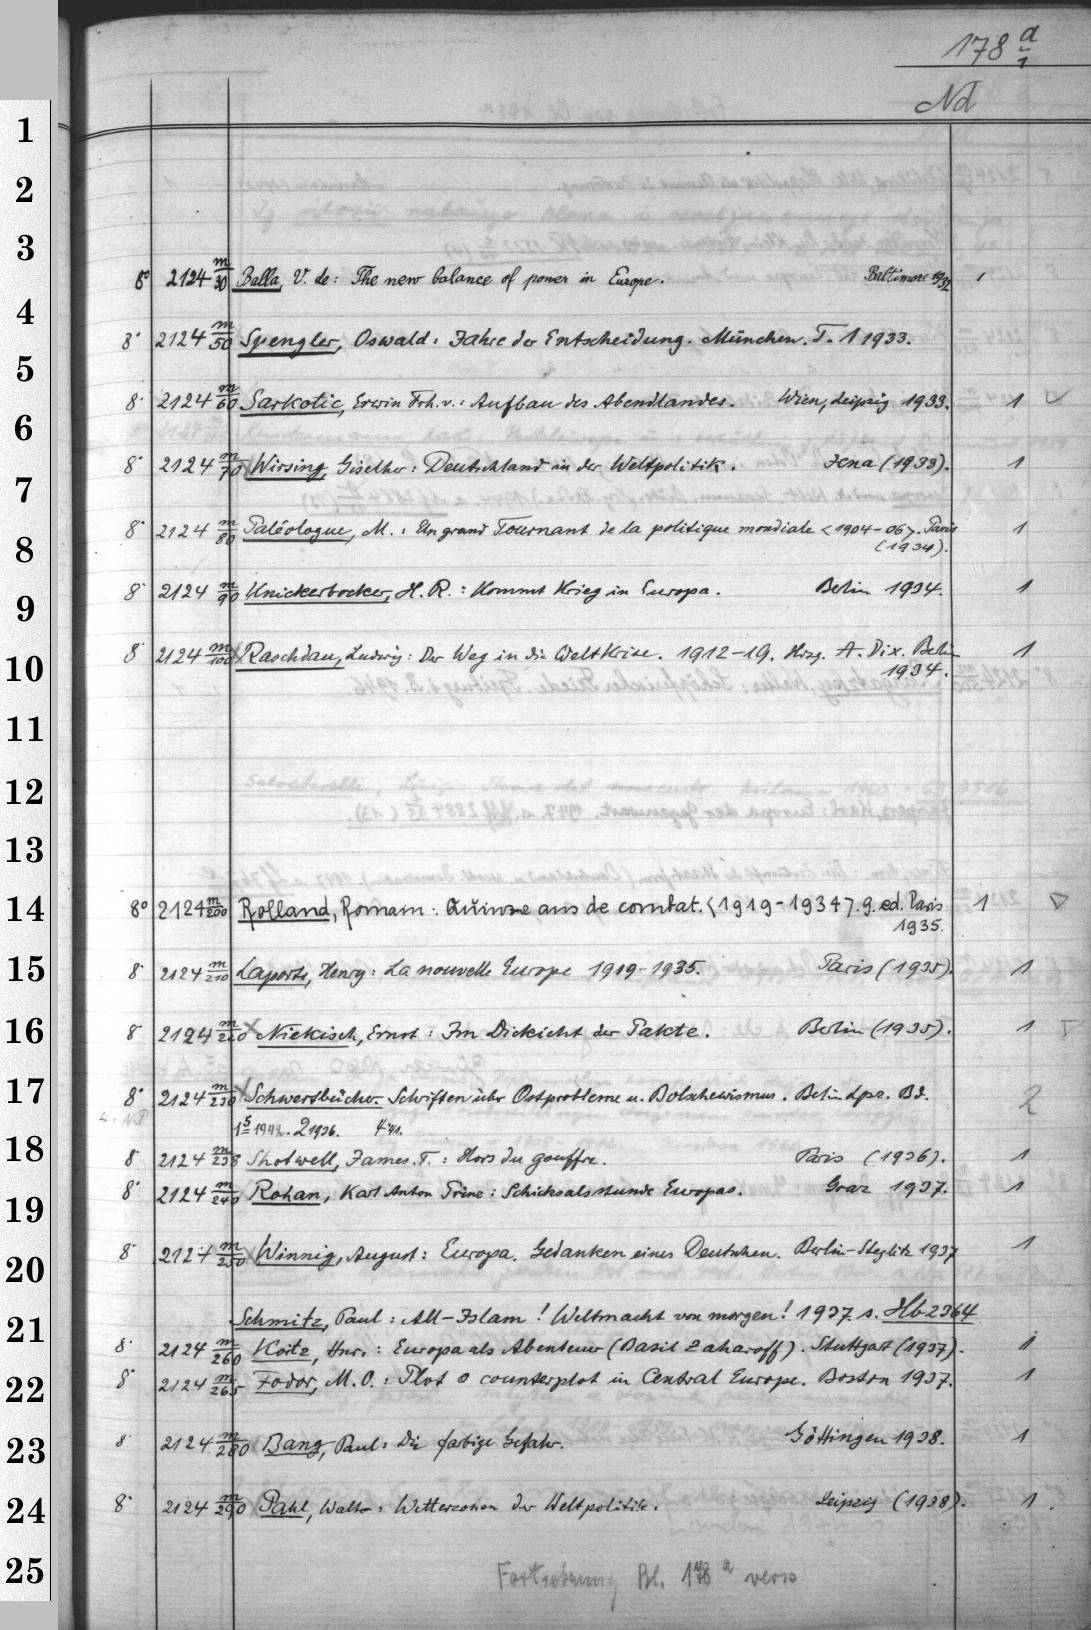 178 a/1
Nd
1
2
3
8° 2124 m/30 Balla, V. de: The new balance of power in Europe. Baltimore 1932 1
4
8° 2124 m/50 Spengler, Oswald: Jahre der Entscheidung. München. T. 1 1933.
5
8° 2124 m/60 Sarkotic, Erwin Frh. v.: Aufbau des Abendlandes. Wien, Leipzig 1933. 1
6
8° 2124 m/70 Wirsing, Giselher: Deutschland in der Weltpolitik. Jena (1933). 1
7
8° 2124 m/80 Paléologue, M.: Un grand Tournant de la politique mondiale <1904-06>. Paris 1
(1934).
8
8° 2124 m/90 Knickerbocker, H. R.: Kommt Krieg in Europa. Berlin 1934. 1
9
8° 2124 m/100 Raschdau, Ludwig: Der Weg in die Weltkrise. 1912-19. Hrsg. A. Dix. Berlin 1
10
1934.
11
12
13
8° 2124 m/200 Rolland, Romain: Quinze ans de combat. <1919-1934>. 9. ed. Paris 1
14
1935.
8° 2124 m/210 Laporte, Henry: La nouvelle Europe 1919-1935. Paris (1935). 1
15
8° 2124 m/220 Niekisch, Ernst: Im Dickicht der Pakte. Berlin (1935). 1
16
8° 2124 m/230 Schwertbücher Schriften über Ostprobleme u. Bolschewismus. Berlin Lpz. Bd. 2
17
1 5 1942. 2 1936. 4 '41.
18
8° 2124 m/238 Shotwell, James. T.: Hors du gouffre. Paris (1936). 1
8° 2124 m/240 Rohan, Karl Anton Prinz: Schicksalsstunde Europas. Graz 1937. 1
19
8° 2124 m/250 Winnig, August: Europa. Gedanken eines Deutschen. Berlin-Steglitz 1937 1
20
Schmitz, Paul: All-Islam! Weltmacht von morgen! 1937. s. Hb 2364
21
8° 2124 m/260 Koitz, Hnr.: Europa als Abenteuer (Basil Zaharoff). Stuttgart (1937). 1
8° 2124 m/265 Fodor, M. O.: Plot o counterplot in Central Europe. Boston 1937. 1
22
8° 2124 m/280 Bang, Paul: Die farbige Gefahr. Göttingen 1938. 1
23
8° 2124 m/290 Pahl, Walter: Wetterzonen der Weltpolitik. Leipzig (1938). 1
24
25
Fortsetzung Bl. 178 a verso